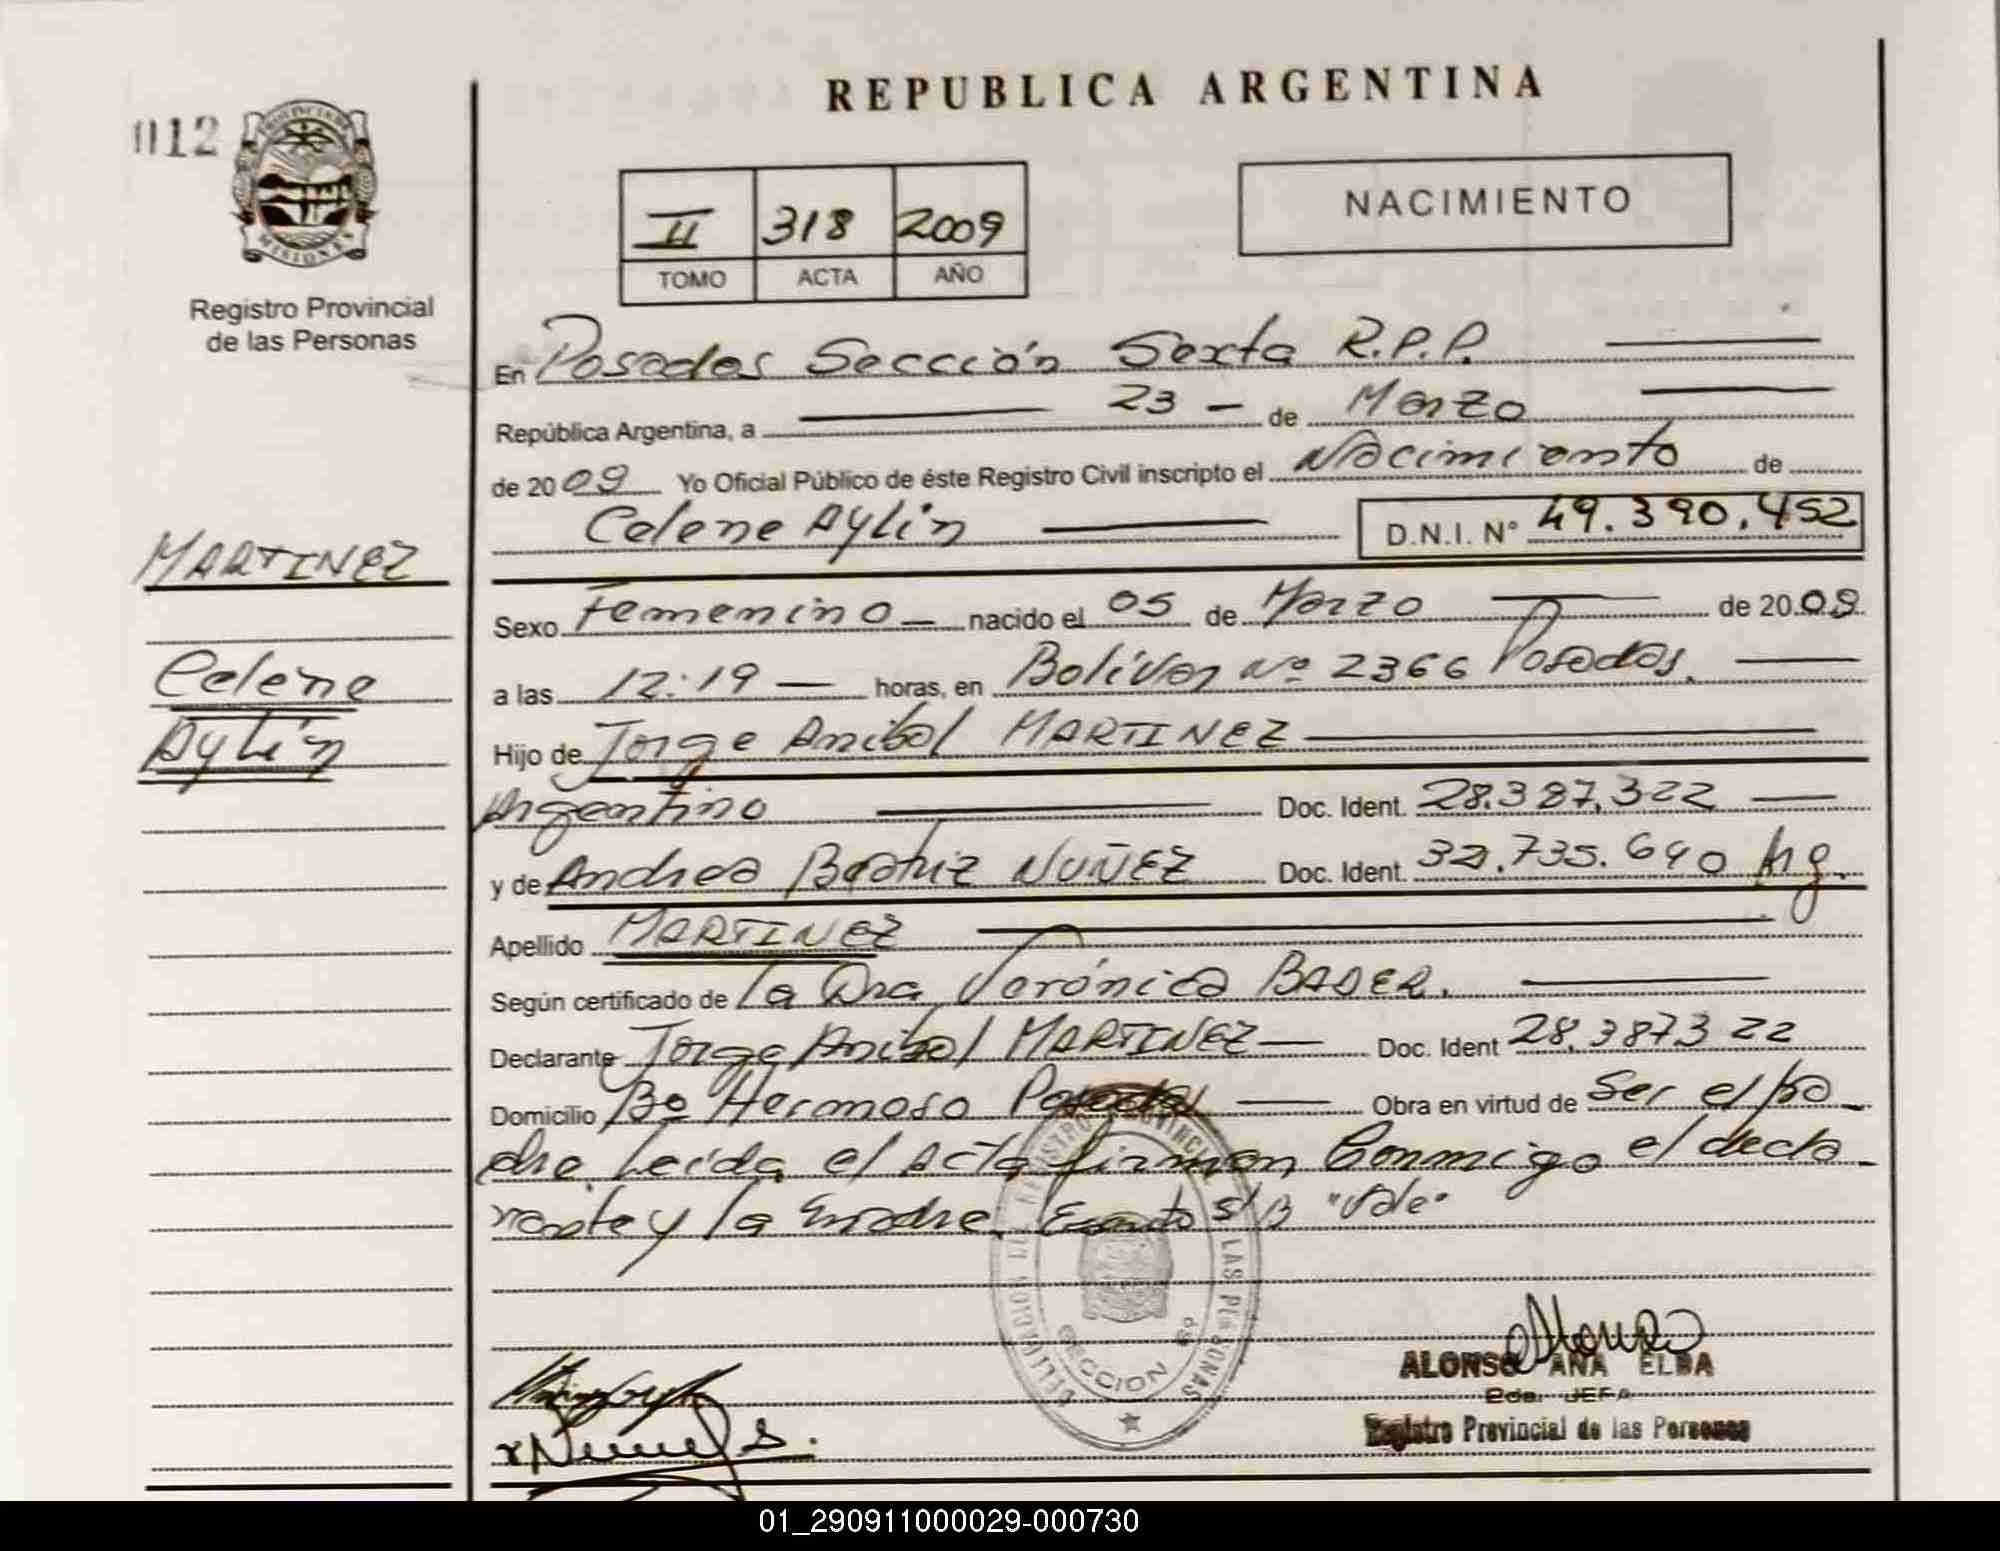 REPUBLICA ARGENTINA
012
PROVINCIA DE MISIONES
Registro Provincial
de las Personas
II 318 2009
TOMO ACTA AÑO
NACIMIENTO
En Posadas Sección Sexta R.P.P.
República Argentina, a 23 - de Marzo
de 2009 Yo Oficial Público de éste Registro Civil inscripto el Nacimiento de
Celene Aylín D.N.I. N° 49.390.452
MARTINEZ
Celene
Aylín
Sexo Femenino nacido el 05 de Marzo de 2009
a las 12:19 horas, en Bolívar Nº 2366 Posadas.
Hijo de Jorge Anibal MARTINEZ
Argentino Doc. Ident. 28.387.322
y de Andrea Beatriz NUÑEZ Doc. Ident. 32.735.640 Arg.
Apellido MARTINEZ
Según certificado de la Dra Verónica BADER.
Declarante Jorge Anibal MARTINEZ Doc. Ident 28.387322
Domicilio Bº Hermoso Posadas Obra en virtud de Ser el pa-
dre. Leída el Acta firman Conmigo el decla-
rante y la madre. S/B "Vale"
REGISTRO PROVINCIAL DE LAS PERSONAS
SECCION 6º
ALONSO ANA ELBA
JEFA
Registro Provincial de las Personas
01_290911000029-000730